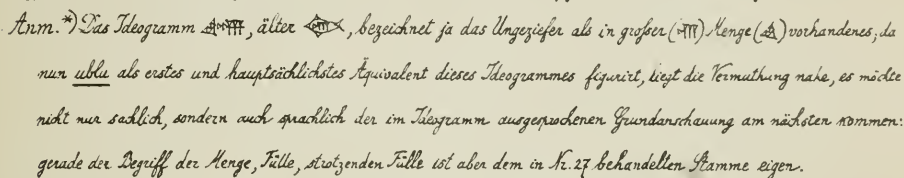 Anm. *) Das Ideogramm , älter , bezeichnet ja das Ungeziefer als in großer () Menge () vorhandenes; da
nun ublu als erstes und hauptsächlichstes Äquivalent dieses Ideogrammes figurirt, liegt die Vermuthung nahe, es möchte
nicht nur sachlich, sondern auch sprachlich der im Ideogramm ausgesprochenen Grundanschauung am nächsten kommen:
gerade der Begriff der Menge, Fülle, strotzenden Fülle ist aber dem in Nr. 27 behandelten Stamme eigen.